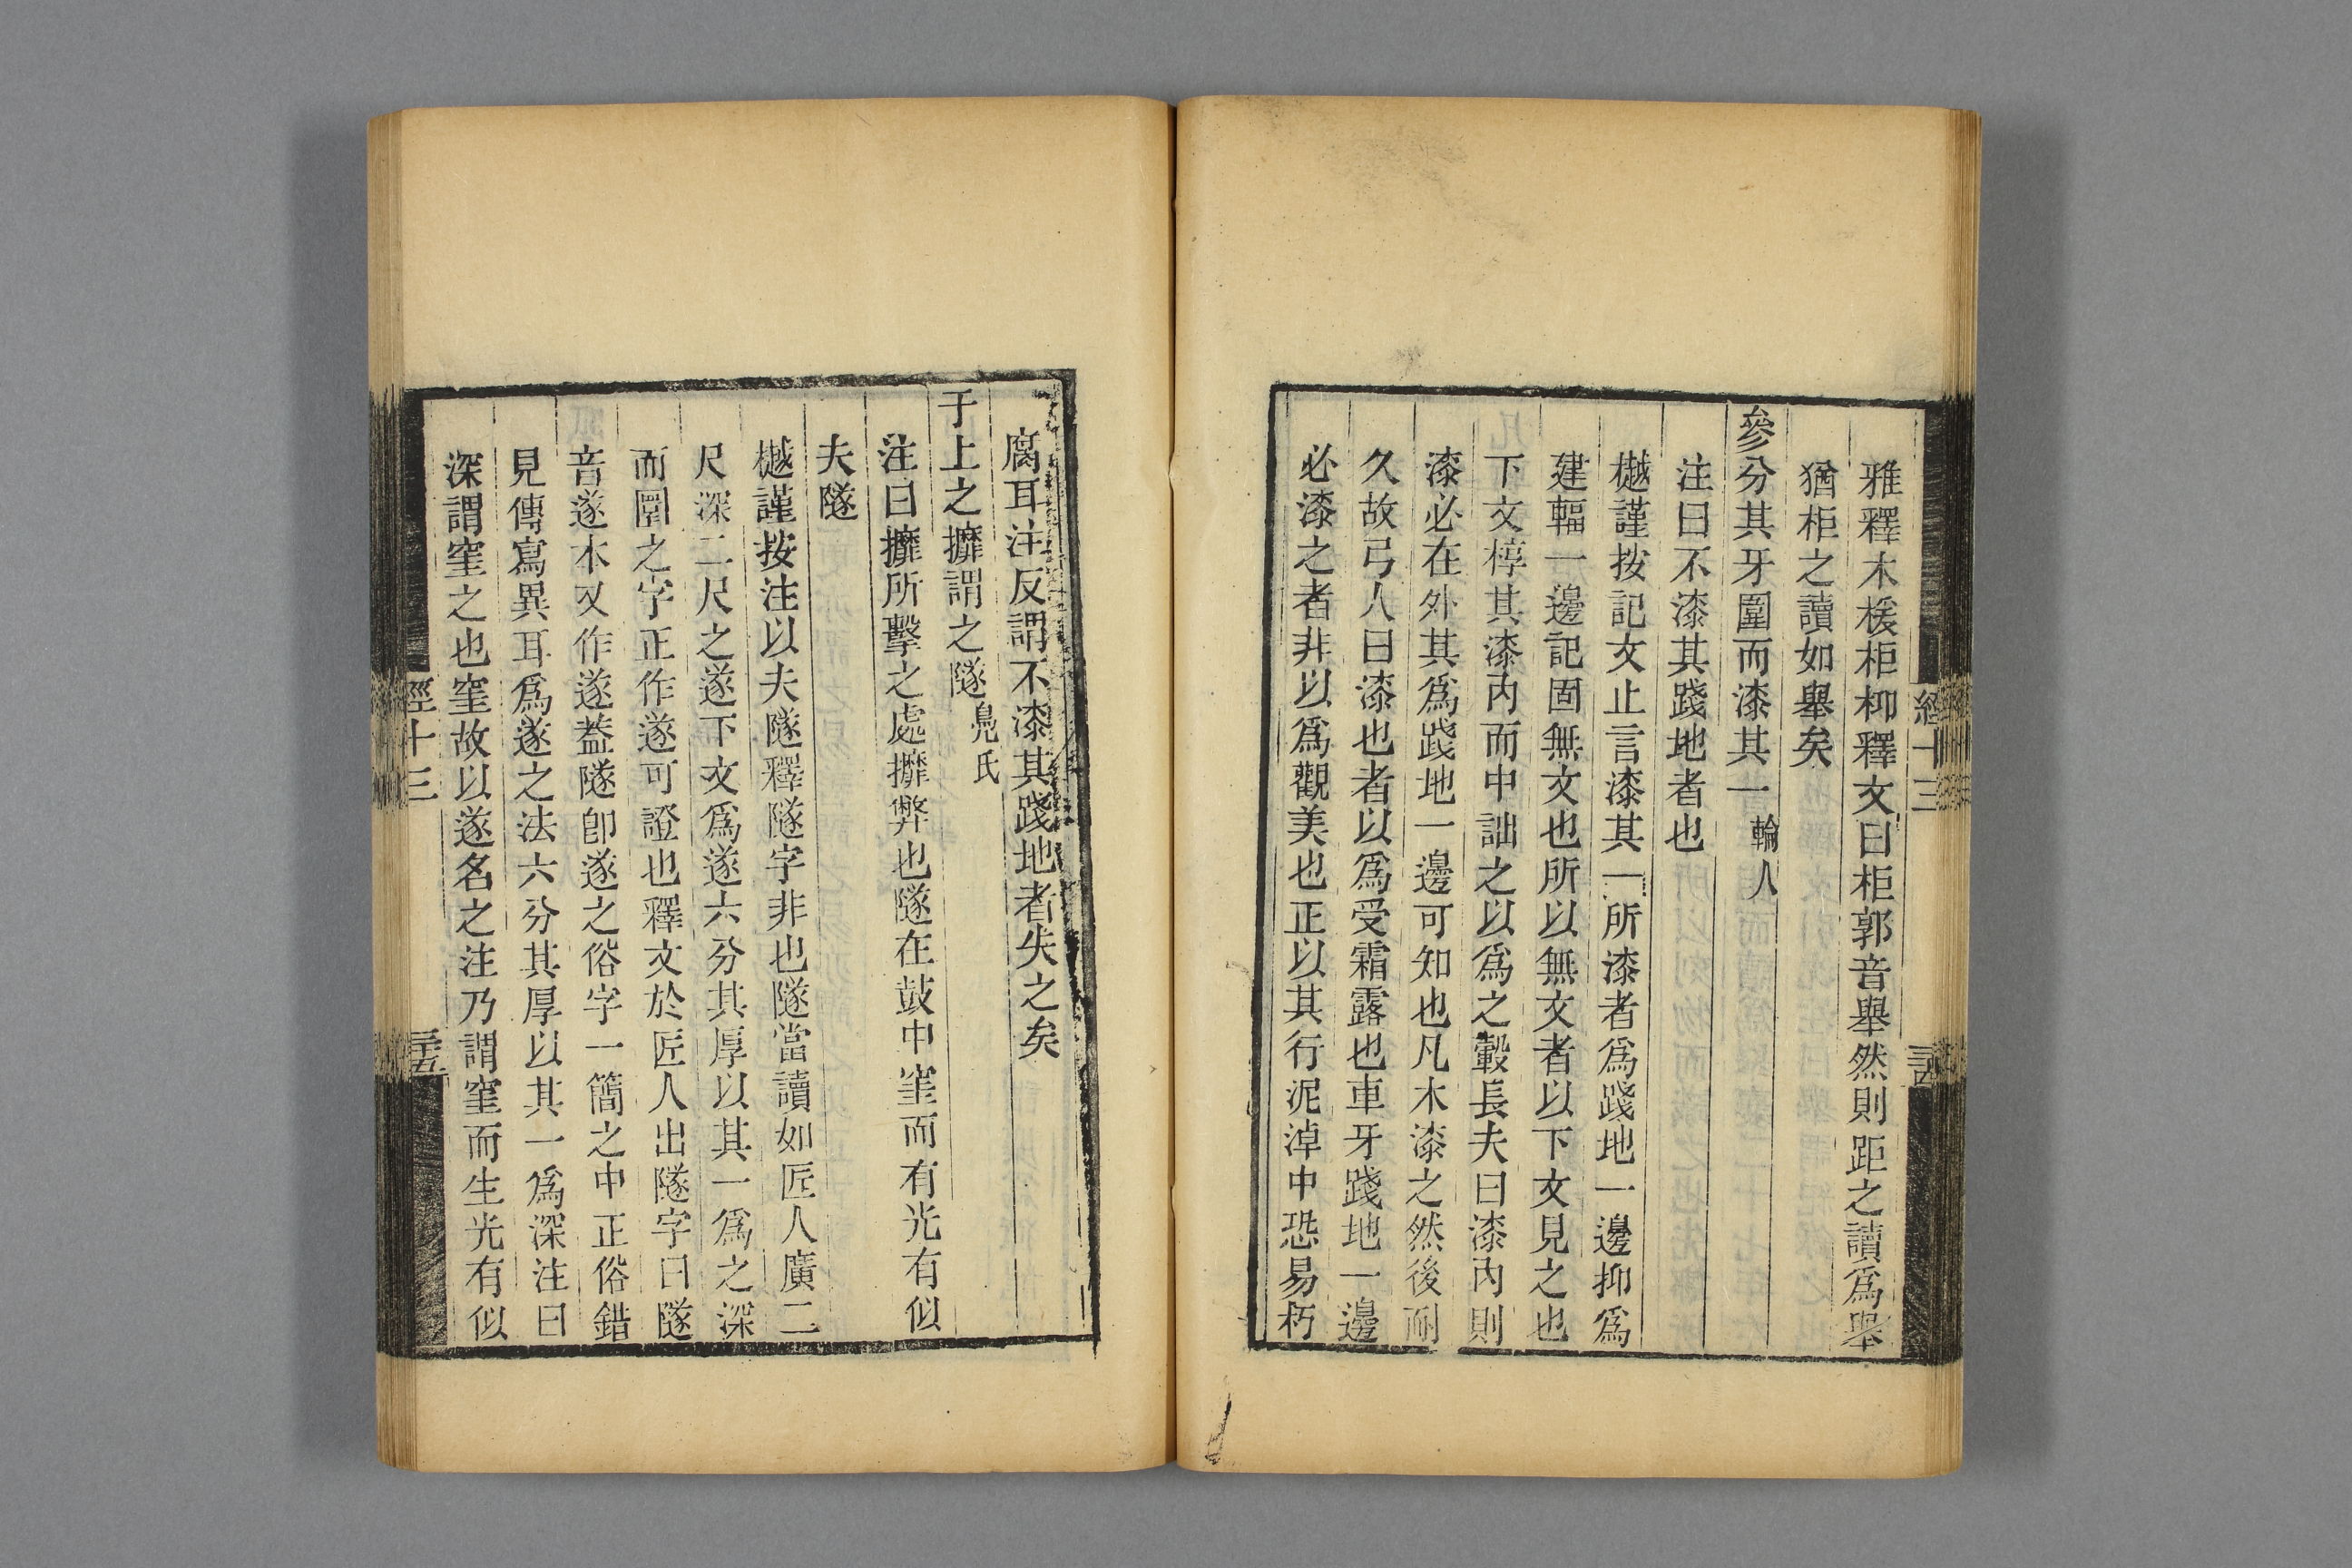 雅釋木楥柜桺釋文曰柜郭音舉然則距之讀爲舉
猶柜之讀如舉矣
參分其牙圍而漆其一輪人
注曰不漆其踐地者也
樾謹按記文止言漆其一所漆者爲踐地一邊抑爲
建輻一邊記固無文也所以無文者以下文見之也
下文椁其漆内而中詘之以爲之轂長夫曰漆内則
漆必在外其爲踐地一邊可知也凡木漆之然後耐
久故弓人曰漆也者以爲受霜露也車牙踐地一邊
必漆之者非以爲觀美也正以其行泥淖中恐易朽
經十三
腐耳注反謂不漆其踐地者失之矣
于上之攠謂之隧鳧氏
注曰攠所擊之處攠弊也隧在鼓中窐而有光有似
夫隧
樾謹按注以夫隧釋隧字非也隧當讀如匠人廣二
尺深二尺之遂下文爲遂六分其厚以其一爲之深
而圜之字正作遂可證也釋文於匠人出隧字曰隧
音遂本又作遂葢隧卽遂之俗字一簡之中正俗錯
見傳寫異耳爲遂之法六分其厚以其一爲深注曰
深謂窐之也窐故以遂名之注乃謂窐而生光有似
經十三
三五